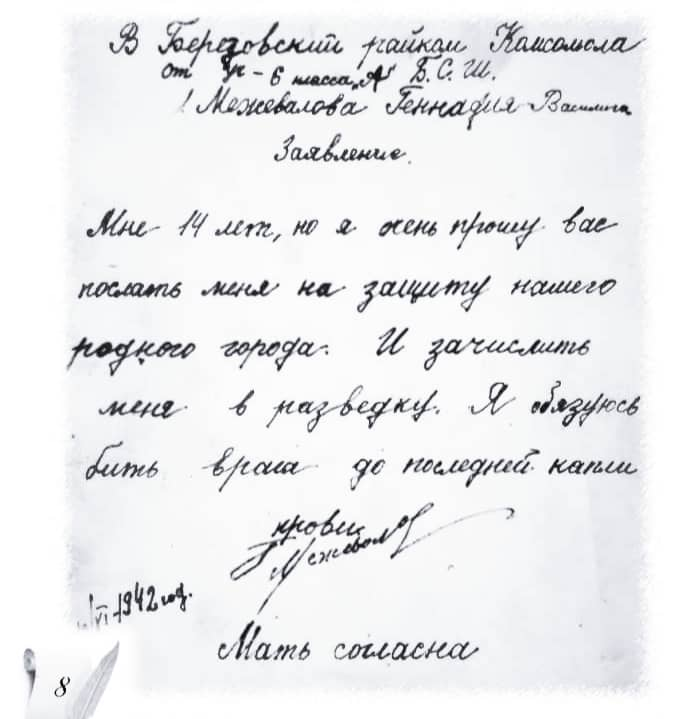 В Березовский райком Комсомола
от уч - 6 класса "А" Б. С. Ш.
Межевалова Геннадия Василича
Заявление.
Мне 14 лет, но я очень прошу вас
послать меня на защиту нашего
родного города. И зачислить
меня в разведку. Я обязуюсь
бить врага до последней капли
крови.
Г Межевалов
/VI-1942 год.
Мать согласна
8